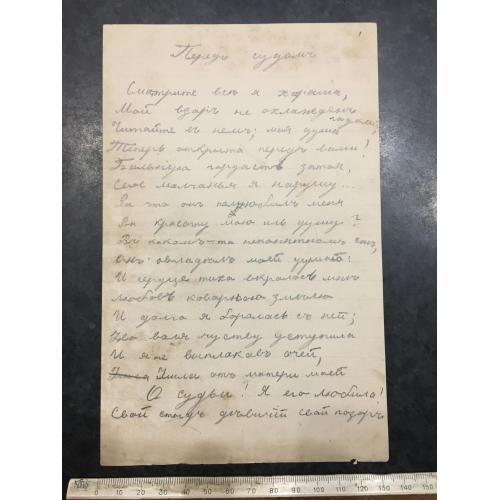 1
Передъ судомъ
Смотрите все я хороша,
Мой взоръ не охлажденъ
годами;
Читайте въ немъ; моя душа
Теперь открыта передъ вами!
Больную гордость затая,
Свое молчанья я нарушу...
За что онъ полюбилъ меня
За красоту мою иль душу?
Въ какомъ-то непонятномъ снѣ,
Онъ овладѣлъ моей душой!
И сердце тихо вкралось мнѣ
Любовь коварною змѣею
И долго я боролась съ ней;
Но воля чуству уступила
И я не выплакавъ очей,
Ушла отъ матери моей
О судьи! Я его любила!
Свой стыдъ дѣвичій свой позоръ
0 10 20 30 40 50 60 70 80 90 100 110 120 130 140 150